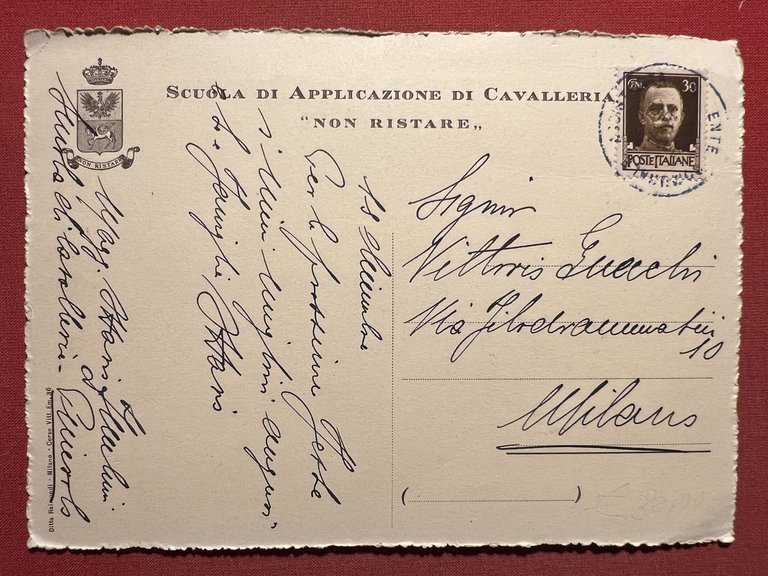 SCUOLA DI APPLICAZIONE DI CAVALLERIA
"NON RISTARE„
NON RISTARE
CENT. 30
POSTE ITALIANE
18 Dicembre
Per le prossime feste
i miei migliori auguri
e la famiglia
Magg.
Scuola di Cavalleria - Pinerolo
Signor
Vittorio
Via Filodrammatici
10
Milano
( )
Ditta Raimondi - Milano - Corso Vitt. Em. 36